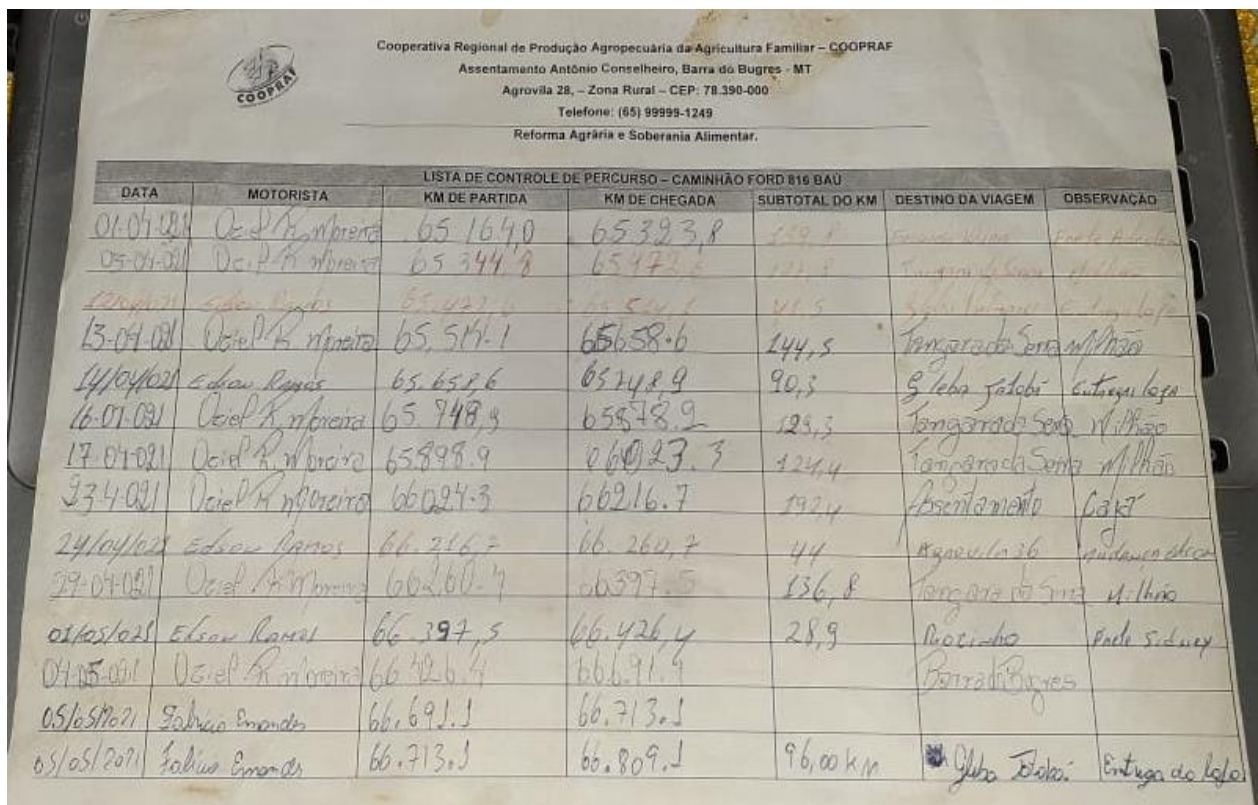 COOPRAF
Cooperativa Regional de Produção Agropecuária da Agricultura Familiar – COOPRAF
Assentamento Antônio Conselheiro, Barra do Bugres - MT
Agrovila 28, – Zona Rural – CEP: 78.390-000
Telefone: (65) 99999-1249
Reforma Agrária e Soberania Alimentar.
LISTA DE CONTROLE DE PERCURSO – CAMINHÃO FORD 816 BAÚ
DATA MOTORISTA KM DE PARTIDA KM DE CHEGADA SUBTOTAL DO KM DESTINO DA VIAGEM OBSERVAÇÃO
01-04-021 Oziel R Moreira 65 164,0 65323,8 159,8
05-04-021 Oziel R Moreira 65 344.8 65472,6
Edson Ramos 41,5
13-04-021 Oziel R Moreira 65.514.1 65658.6 144,5 Tangara da Serra Milhão
14/04/021 Edson Ramos 65.658,6 65748,9 90,3 Gleba Jatobá
16-04-021 Oziel R Moreira 65.748,9 65878.2 129,3 Tangara da Serra Milhão
17-04-021 Oziel R Moreira 65898.9 66023.3 124,4 Tangara da Serra Milhão
23-4-021 Oziel R Moreira 66024.3 66216.7 192,4 Assentamento Cajá
24/04/021 Edson Ramos 66.216,7 66.260,7 44 Agrovila 36
29-04-021 Oziel R Moreira 66260.7 66397.5 136,8 Tangara da Serra Milhão
01/05/021 Edson Ramos 66.397,5 66.426,4 28,9 Frete Sidney
04-05-021 Oziel R Moreira 66 426.4 66.691.1 Barra do Bugres
05/05/2021 Fabricio Ernandes 66.691.1 66.713.1
05/05/2021 Fabricio Ernandes 66.713.1 66.809.1 96,00 KM Gleba Jatobá. Entrega do